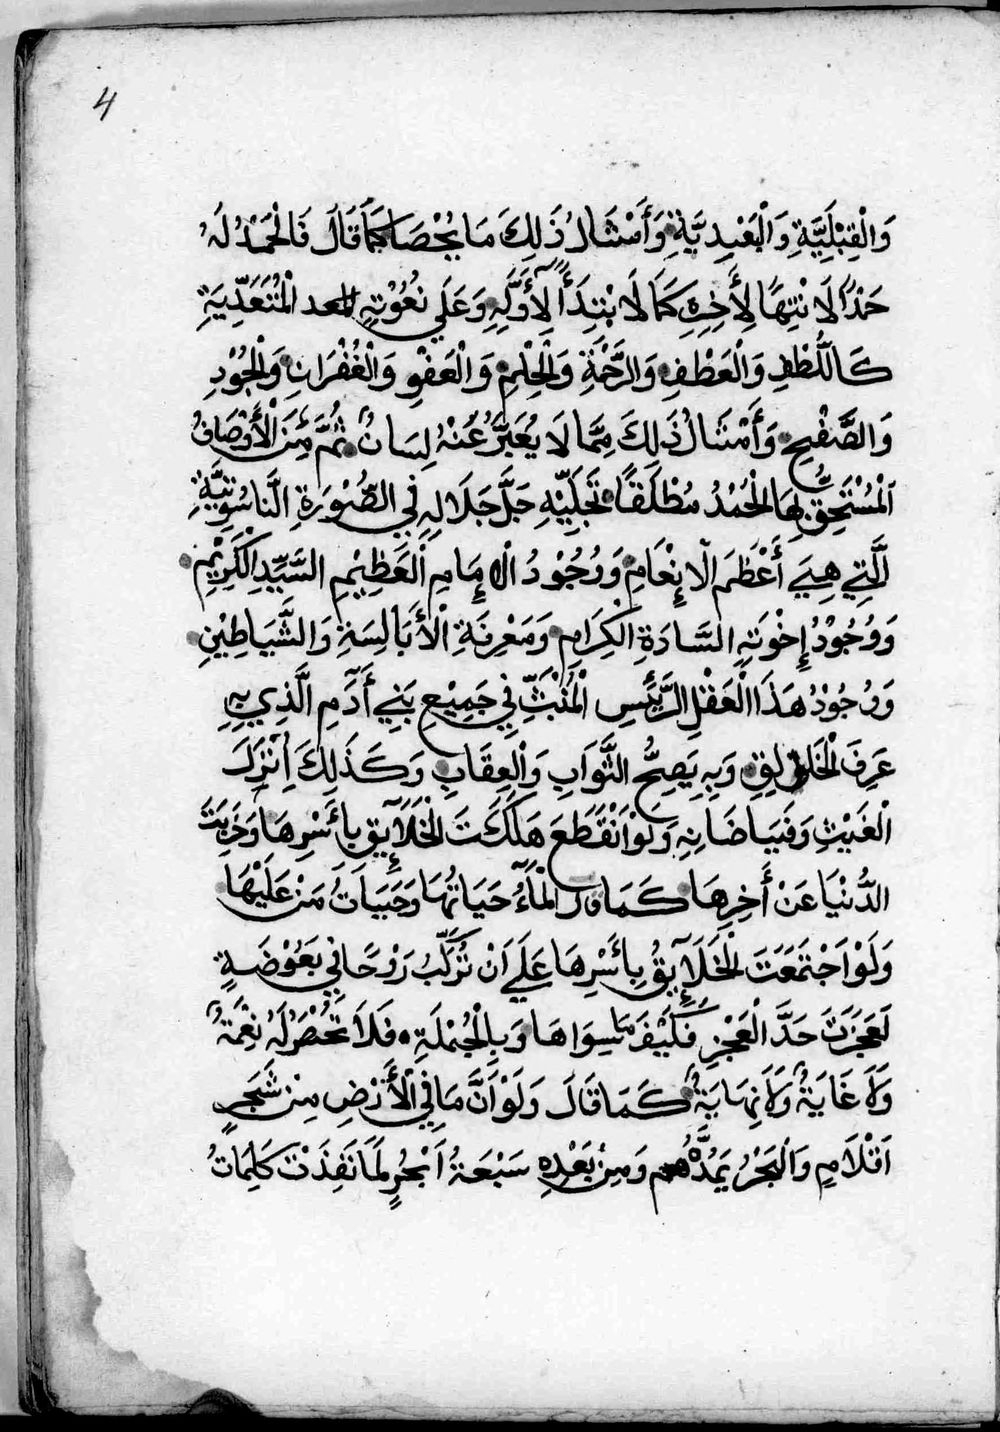 4
وَالْقِبْلِيَّةِ وَالْبَعْدِيَّةِ وَأَمْثَالُ ذَلِكَ مَا يُحْصَا كَمَا قَالَ فَالْحَمْدُ لَهُ
حَمْدًا لَا نْتِهَا لِأَخِرِهِ كَمَا لَا بْتِدَأً لِأَوَّلِهِ وَعَلَي نُعُوْتِهِ الْمُتَعَدِّيَةِ
كَاللُّطْفِ وَالْعَطْفِ وَالرَّحْمَةِ وَالْحِلْمِ وَالْعَفْوِ وَالْغُفْرَانِ وَالْجُوْدِ
وَالصَّفْحِ وَأَمْثَالُ ذَلِكَ مِمَّا لَا يُعَبِّرُ عَنْهُ لِسَانٌ ثُمَّ مِنَ الْأَوْصَافُ
الْمُسْتَحِقُّ بِهَا الْحَمْدُ مُطْلَقًا تَجَلِّيْهِ جَلَّ جَلَالِهِ فِي الصُّوْرَةِ النَّاسُوْتِيَّةِ
الَّتِي هِيَ أَعْظَمَ الْإِنْعَامِ وَوُجُوْدُ الْإِمَامِ الْعَظِيْمِ السَّيِّدِ الْكَرِيْمِ
وَوُجُوْدُ إِخْوَتِهِ السَّادَةِ الْكِرَامِ وَمَعْرِفَةِ الْأَبَالِسَةِ وَالشَّيَاطِيْنِ
وَوُجُوْدُ هَذَا الْعَقْلِ الرَّئَيسِ الْمُنْبَثِّ فِي جَمِيْعِ بَنِي أَدَمِ الَّذِي بِهِ
عَرِفَ الْخَلَايِقِ وَبِهِ يَصِحُّ الثَّوَابِ وَالْعِقَابِ وَكَذَلِكَ إِنْزَلَ
الْغَيْثِ وَفَيَاضَانِهِ وَلَوْ انْقَطَعَ هَلَكَتَ الْخَلَآئِقِ بِأَسْرِهَا وَخَرِبَتَ
الدُّنْيَا عَنْ أَخِرِهَا كَمَا قَالَ الْمَآءُ حَيَاتُهَا وَحَيَاتُ مَنْ عَلَيْهَا
وَلَوْ اجْتَمَعَتَ الْخَلَآئِقُ بِأَسْرِهَا عَلَي اَنْ تُرَكِّبُ رَوْحَانِي بَعُوْضَةٍ
لَعَجَزَتَ حَدَّ الْعَجْزِ فَكَيْفَ مَا سِوَاهَا وَبِالْجُمْلَةِ فَلَا تُحْصَرُ لَهُ نِعْمَةٌ
وَلَا غَايَةٌ وَلَا نِهَايَةٌ كَمَا قَالَ وَلَوْ اَنَّ مَا فِي الْأَرْضِ مِنْ شَجَرٍ
اَقْلَامٍ وَالْبَحْرُ يَمُدُّهُ مِنْ بَعْدِهِ سَبْعَةُ اَبْحُرٍ لَمَا نَفِذَتْ كَلِمَاتُ